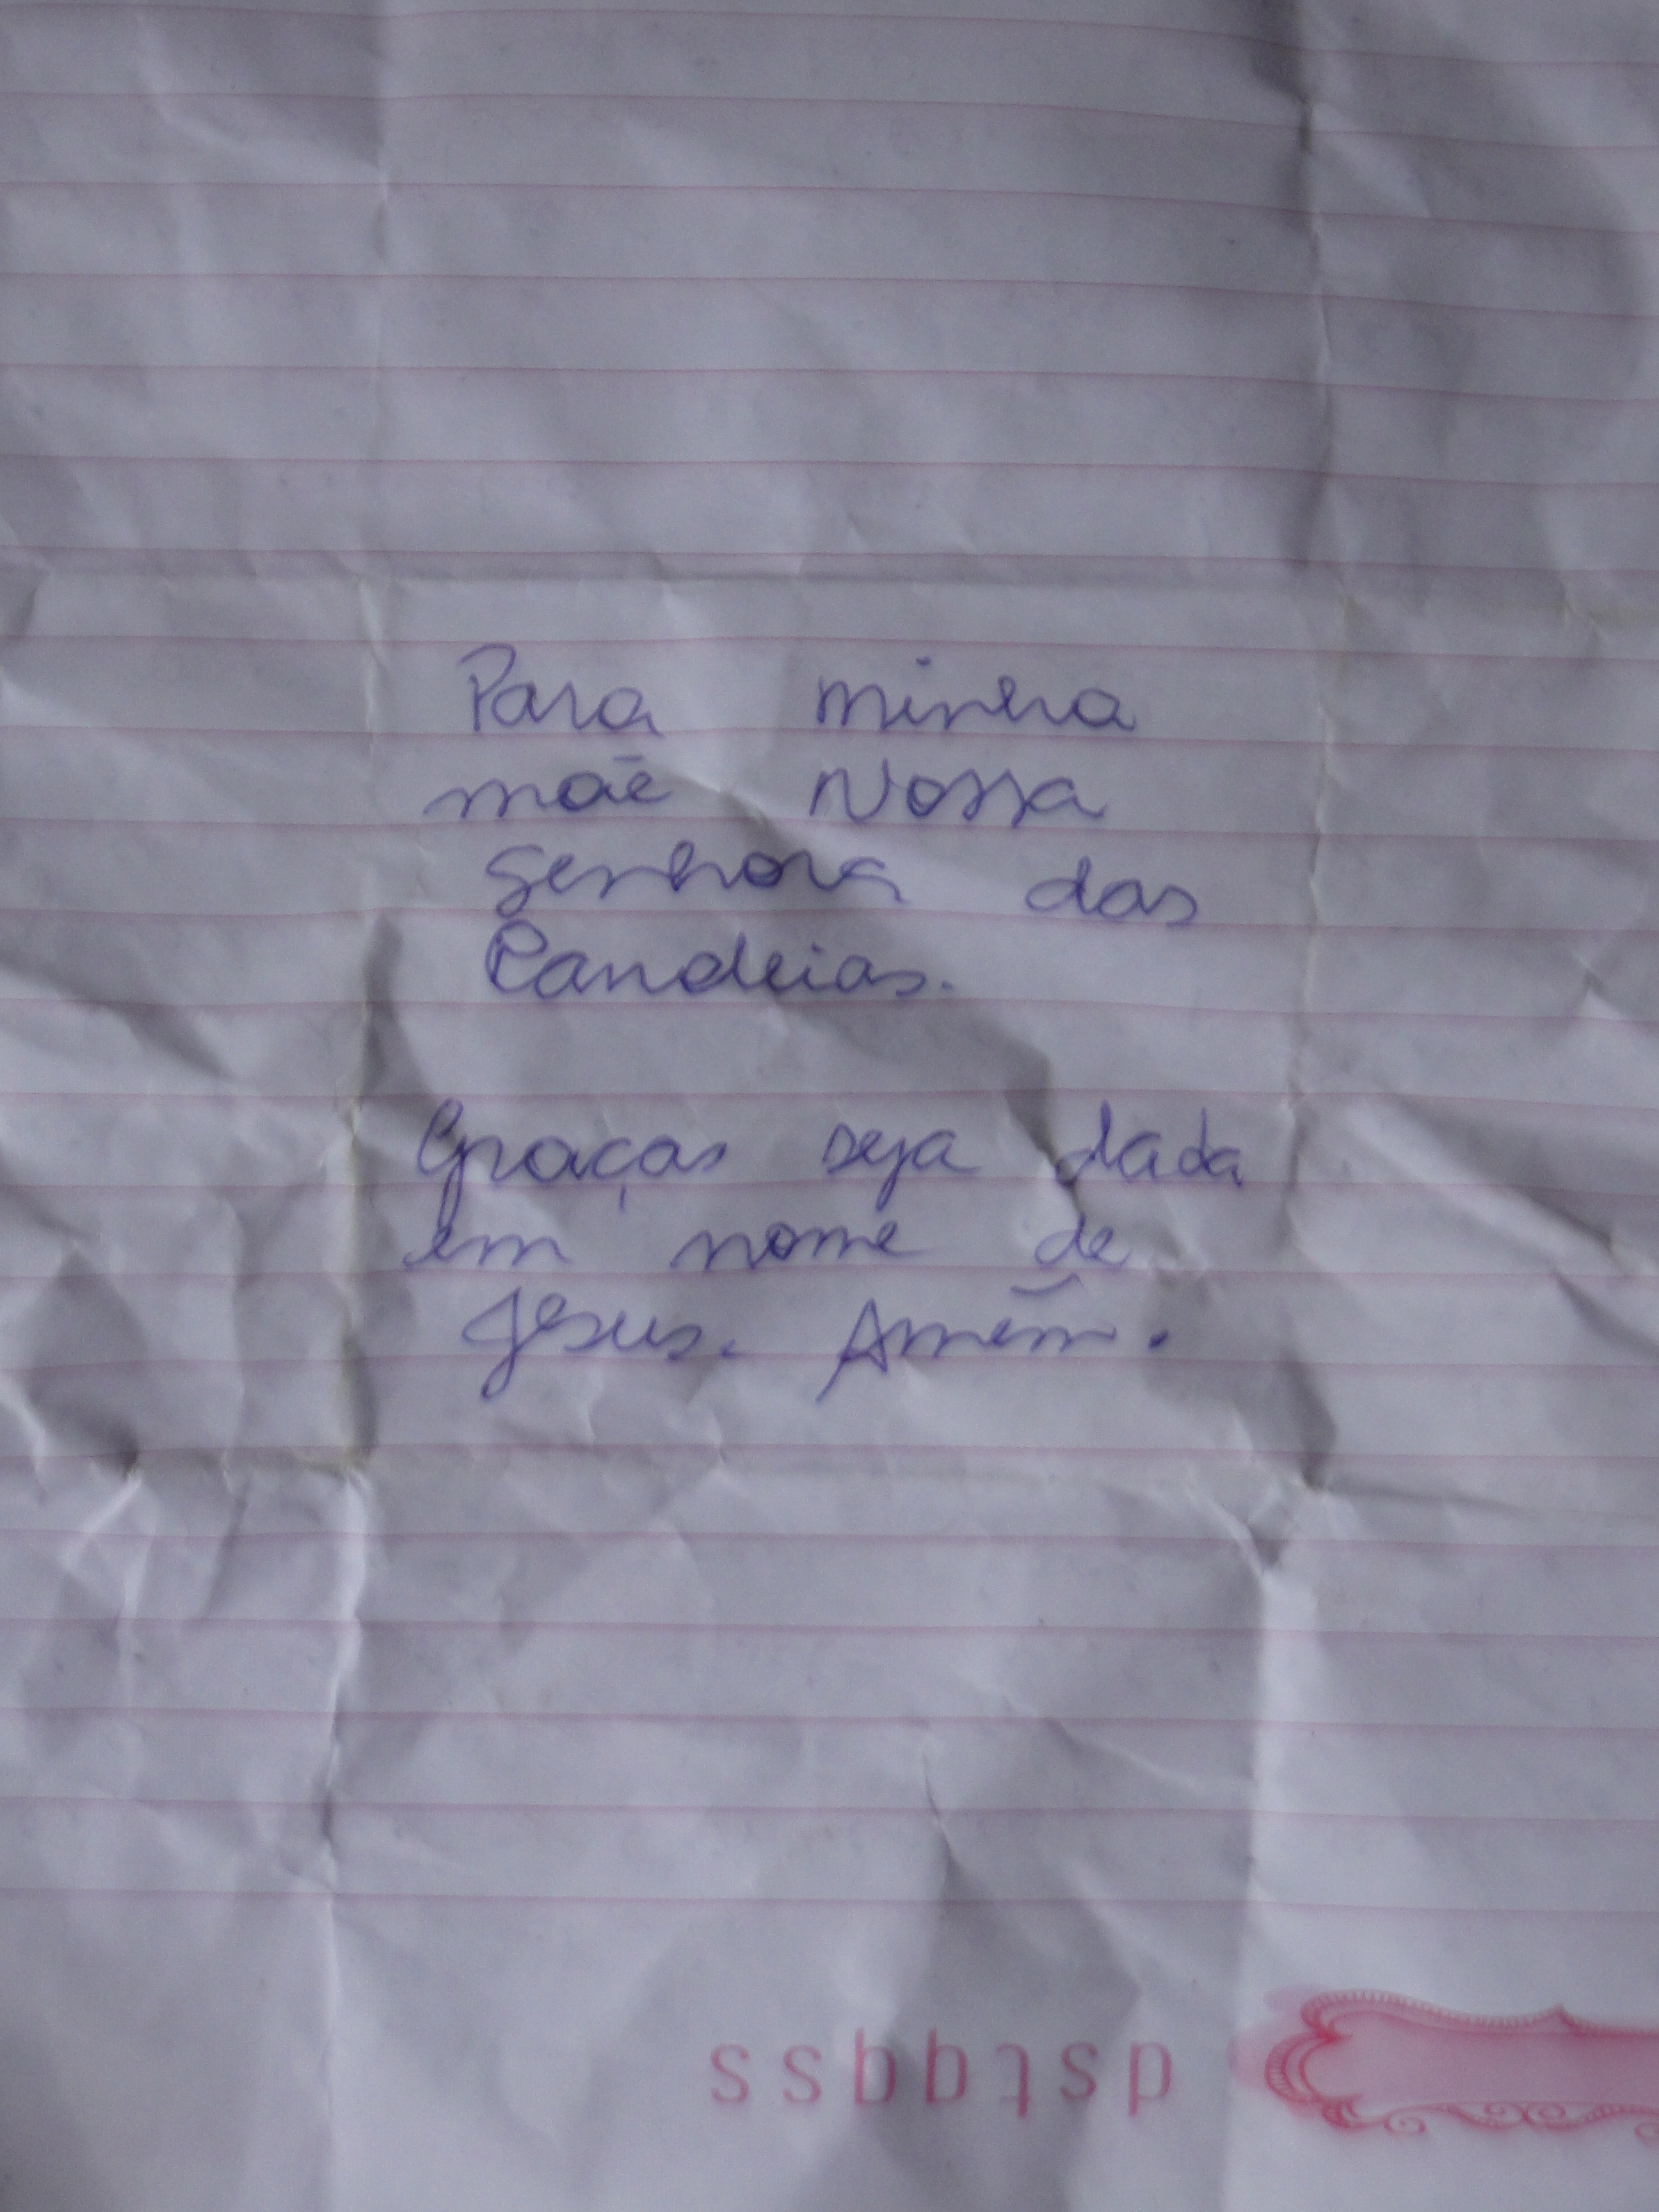 Para minha
mãe Nossa
Senhora das
Candeias.
Graças seja dada
em nome de
Jesus. Amém.
dstqqss